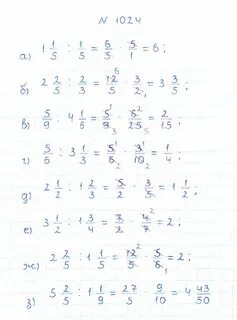 N 1024
а) 1 1/5 : 1/5 = 6/5 · 5/1 = 6;
б) 2 2/5 : 2/3 = 12/5 · 3/2 = 3 3/5;
в) 5/9 : 4 1/6 = 5/9 · 6/25 = 2/15;
г) 5/6 : 3 1/3 = 5/6 · 3/10 = 1/4;
д) 2 1/2 : 1 2/3 = 5/2 · 3/5 = 1 1/2;
е) 3 1/2 : 1 3/4 = 7/2 · 4/7 = 2;
ж) 2 2/5 : 1 1/5 = 12/5 · 5/6 = 2;
з) 5 2/5 : 1 1/9 = 27/5 · 9/10 = 4 43/50